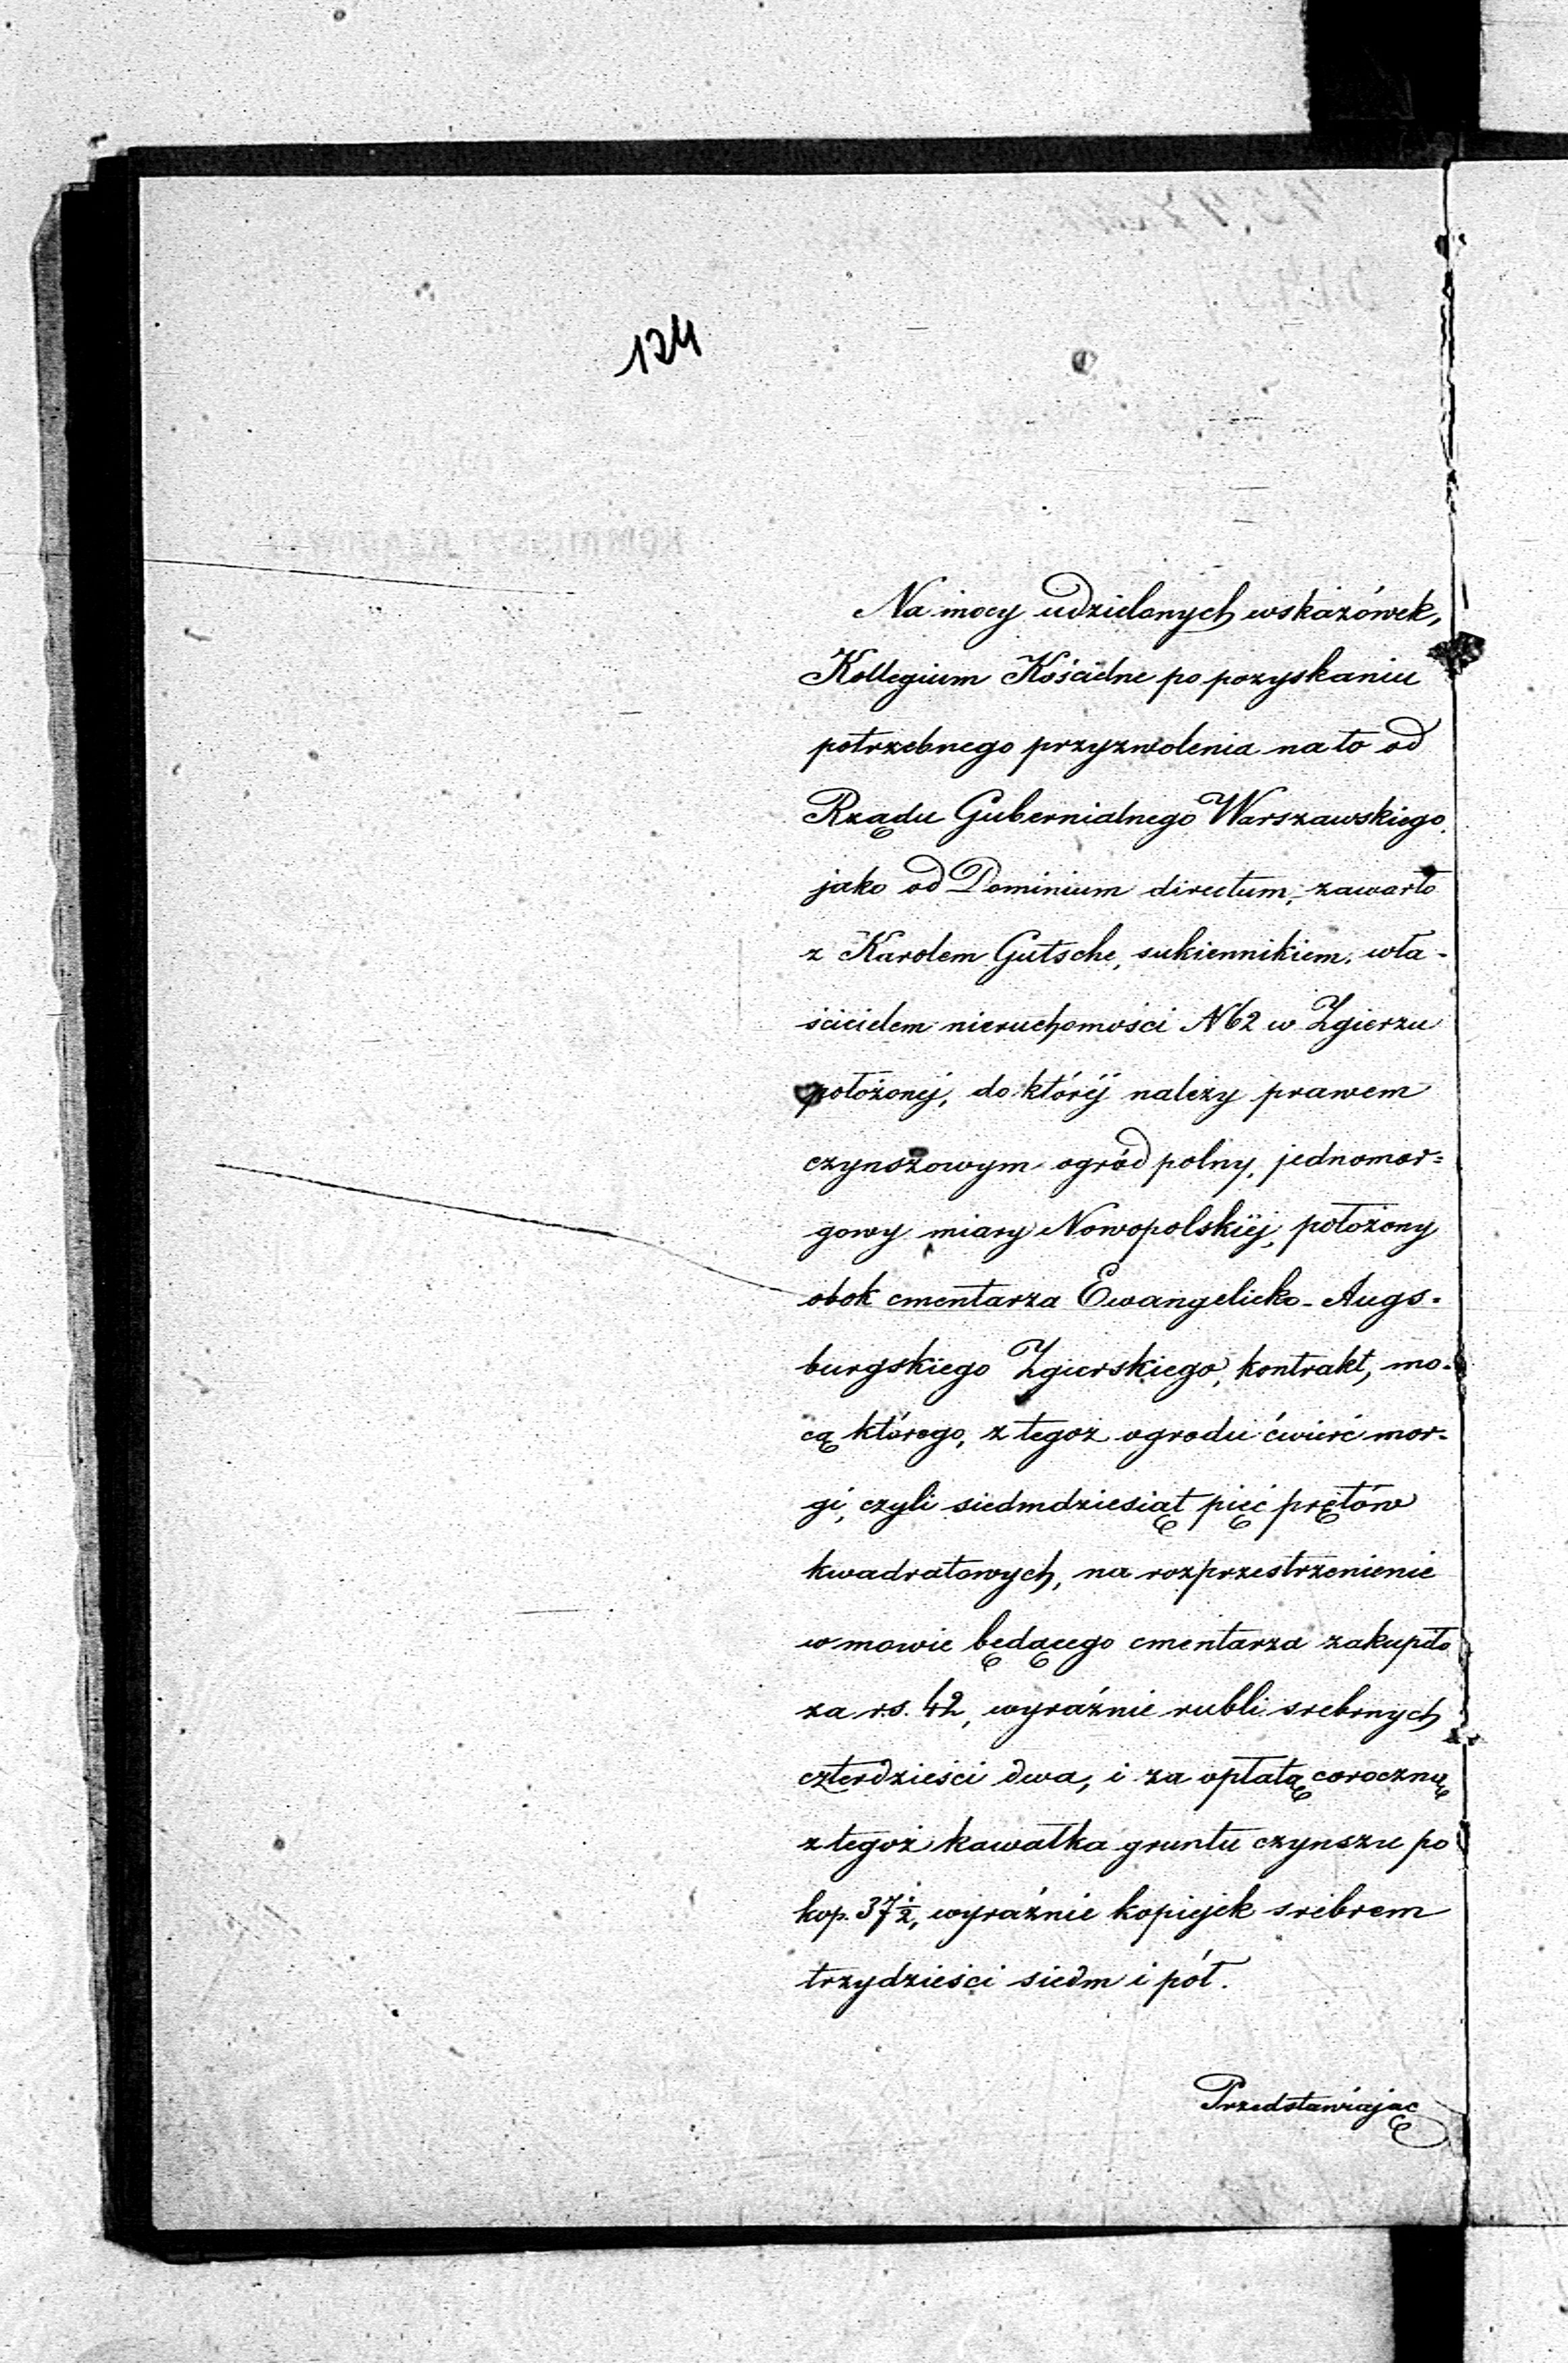 124
Na mocy udzielonych wskazówek,
Kollegium Kościelne po pozyskaniu
potrzebnego przyzwolenia na to od
Rządu Gubernialnego Warszawskiego,
jako od Dominium directum, zawarło
z Karolem Gutsche, sukiennikiem, wła-
ścicielem nieruchomości N 62 w Zgierzu
położonej, do któréj należy prawem
czynszowym ogród polny, jednomor=
gowy miary Nowopolskiéj, położony
obok cmentarza Ewangelicko-Augs-
burgskiego Zgierskiego, kontrakt, mo-
cą którego, z tegoż ogrodu ćwierć mor-
gi, czyli siedmdziesiąt pięć prętów
kwadratowych, na rozprzestrzenienie
w mowie będącego cmentarza zakupiło
za r.s. 42, wyraźnie rubli srebrnych
czterdzieści dwa, i za opłatą coroczną
z tegoż kawałka gruntu czynszu po
kop. 37½, wyraźnie kopiejek srebrem
trzydzieści siedm i pół.
Przedstawiając